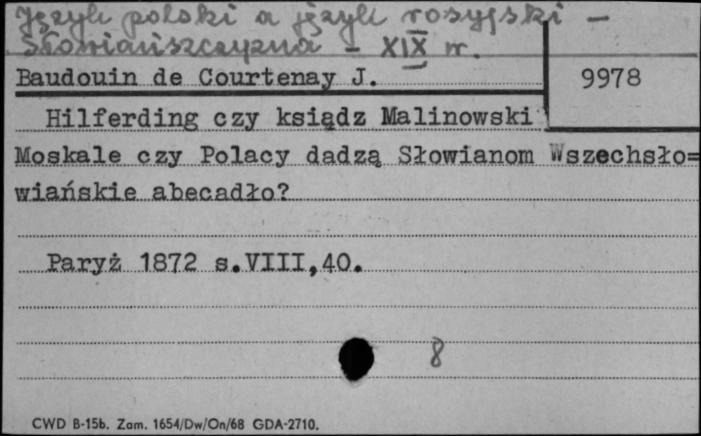 Język polski a język rosyjski –
Słowiańszczyzna – XIX w.
Baudouin de Courtenay J. 9978
Hilferding czy ksiądz Malinowski
Moskale czy Polacy dadzą Słowianom Wszechsło=
wiańskie abecadło?
Paryż 1872 s.VIII,40.
8
CWD B-15b. Zam. 1654/Dw/On/68 GDA-2710.